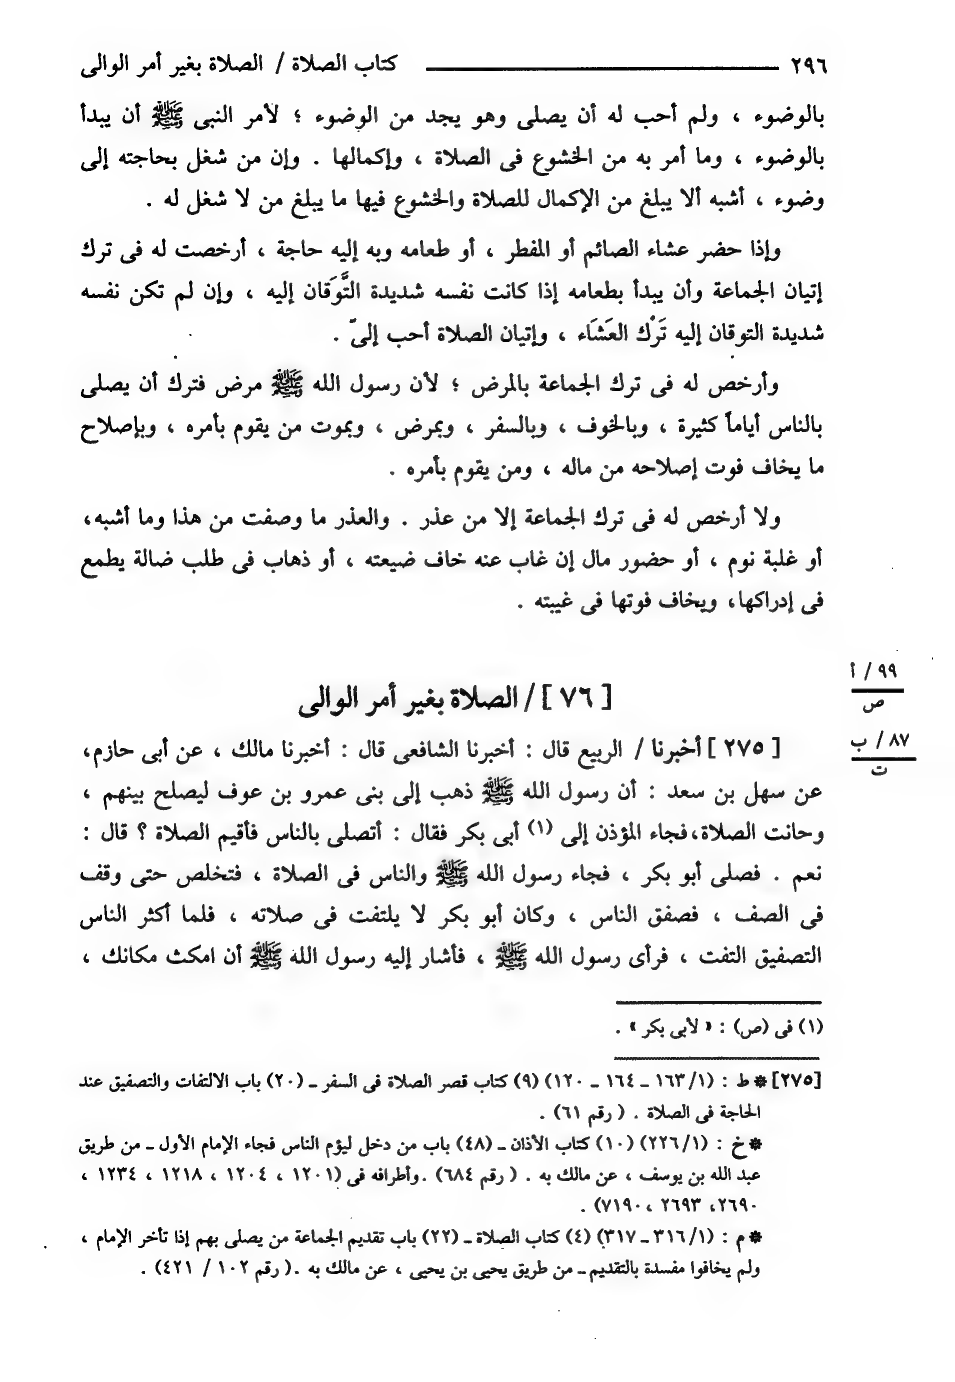 ٢٩٦ كتاب الصلاة / الصلاة بغير أمر الوالى
بالوضوء ، ولم أحب له أن يصلى وهو يجد من الوضوء ؛ لأمر النبى ﷺ أن يبدأ
بالوضوء ، وما أمر به من الخشوع فى الصلاة ، وإكمالها . وإن من شغل بحاجته إلى
وضوء ، أشبه ألا يبلغ من الإكمال للصلاة والخشوع فيها ما يبلغ من لا شغل له .
وإذا حضر عشاء الصائم أو المفطر ، أو طعامه وبه إليه حاجة ، أرخصت له فى ترك
إتيان الجماعة وأن يبدأ بطعامه إذا كانت نفسه شديدة التَّوَقان إليه ، وإن لم تكن نفسه
شديدة التوقان إليه تَرْك العَشَاء ، وإتيان الصلاة أحب إلىّ .
وأرخص له فى ترك الجماعة بالمرض ؛ لأن رسول الله ﷺ مرض فترك أن يصلى
بالناس أياماً كثيرة ، وبالخوف ، وبالسفر ، وبمرض ، وبموت من يقوم بأمره ، وبإصلاح
ما يخاف فوت إصلاحه من ماله ، ومن يقوم بأمره .
ولا أرخص له فى ترك الجماعة إلا من عذر . والعذر ما وصفت من هذا وما أشبه،
أو غلبة نوم ، أو حضور مال إن غاب عنه خاف ضيعته ، أو ذهاب فى طلب ضالة يطمع
فى إدراكها، ويخاف فوتها فى غيبته .
٩٩ / أ
ص
[ ٧٦ ] / الصلاة بغير أمر الوالى
٨٧ / ب
ت
[ ٢٧٥ ] أخبرنا / الربيع قال : أخبرنا الشافعى قال : أخبرنا مالك ، عن أبى حازم،
عن سهل بن سعد : أن رسول الله ﷺ ذهب إلى بنى عمرو بن عوف ليصلح بينهم ،
وحانت الصلاة،فجاء المؤذن إلى (١) أبى بكر فقال : أتصلى بالناس فأقيم الصلاة ؟ قال :
نعم . فصلى أبو بكر ، فجاء رسول الله ﷺ والناس فى الصلاة ، فتخلص حتى وقف
فى الصف ، فصفق الناس ، وكان أبو بكر لا يلتفت فى صلاته ، فلما أكثر الناس
التصفيق التفت ، فرأى رسول الله ﷺ ، فأشار إليه رسول الله ﷺ أن امكث مكانك ،
(١) فى (ص) : « لأبى بكر » .
[٢٧٥] * ط : (١/ ١٦٣ ـ ١٦٤ ـ ١٢٠) (٩) كتاب قصر الصلاة فى السفر ـ (٢٠) باب الالتفات والتصفيق عند
الحاجة فى الصلاة . ( رقم ٦١) .
* خ : (١/ ٢٢٦) (١٠) كتاب الأذان ـ (٤٨) باب من دخل ليؤم الناس فجاء الإمام الأول ـ من طريق
عبد الله بن يوسف ، عن مالك به . ( رقم ٦٨٤) .وأطرافه فى (١٢٠١ ، ١٢٠٤ ، ١٢١٨ ، ١٢٣٤ ،
٢٦٩٠، ٢٦٩٣ ،٧١٩٠) .
* م : (١/ ٣١٦ ـ ٣١٧) (٤) كتاب الصلاة ـ (٢٢) باب تقديم الجماعة من يصلى بهم إذا تأخر الإمام ،
ولم يخافوا مفسدة بالتقديم ـ من طريق يحيى بن يحيى ، عن مالك به .( رقم ١٠٢ / ٤٢١) .